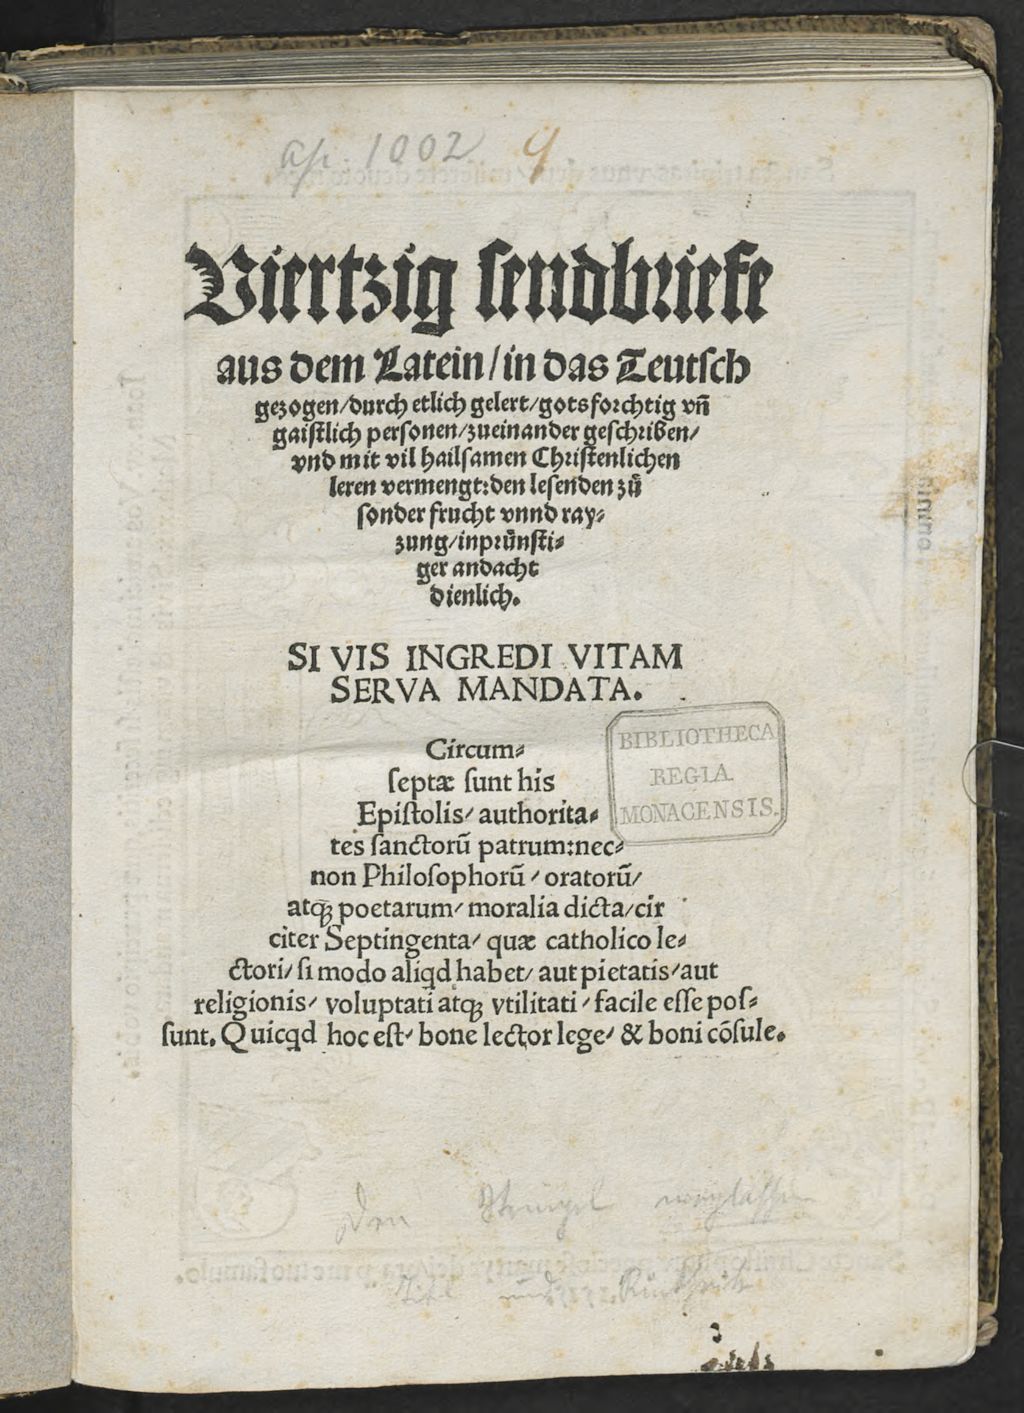 1002
Viertzig sendbriefe
aus dem Latein/in das Teutsch
gezogen/durch etlich gelert/gotsforchtig vn̄
gaistlich personen/zueinander geschriben/
vnd mit vil hailsamen Christenlichen
leren vermengt:den lesenden zů
sonder frucht vnnd ray⸗
zung/inprünsti⸗
ger andacht
dienlich.
SI VIS INGREDI VITAM
SERVA MANDATA.
Circum⸗
ſeptæ ſunt his
Epiſtolis/ authorita⸗
tes ſanctorū patrum:nec⸗
non Philoſophorū / oratorū/
atqꝫ poetarum/ moralia dicta/cir
citer Septingenta/ quæ catholico le⸗
ctori/ ſi modo aliqd habet/ aut pietatis/aut
religionis/ voluptati atqꝫ vtilitati / facile eſſe poſ⸗
ſunt. Quicqd hoc eſt/ bone lector lege/ & boni cōſule.
BIBLIOTHECA
REGIA
MONACENSIS.
Den Stempel weglassen
Titel und Rückseite